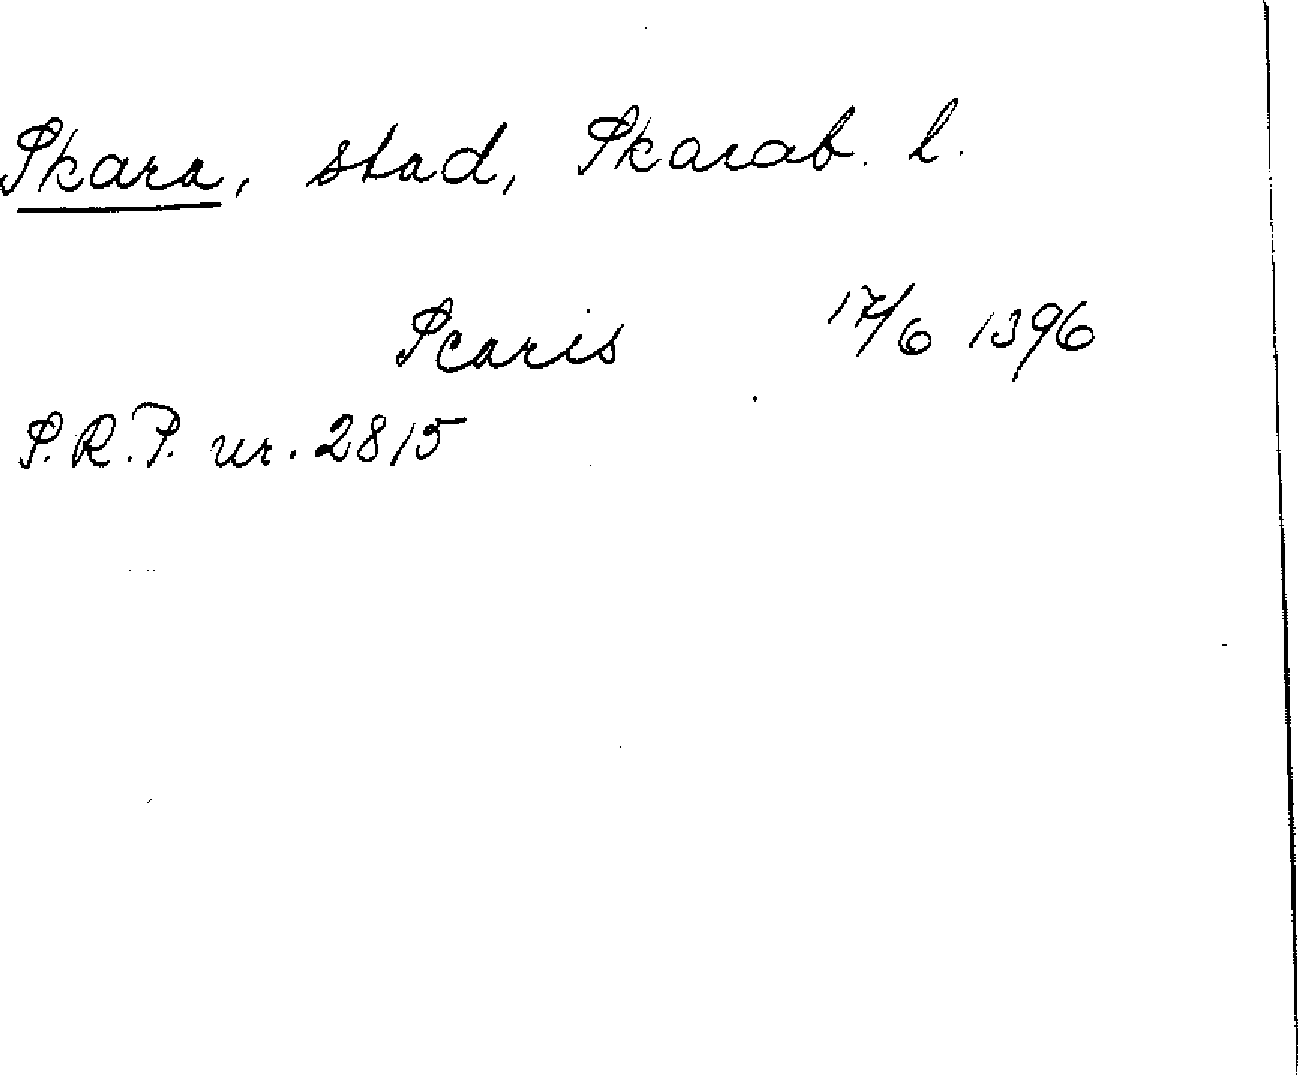 Skara, stad, Skarab. l.
Scaris 17/6 1396
S.R.P. nr. 2815